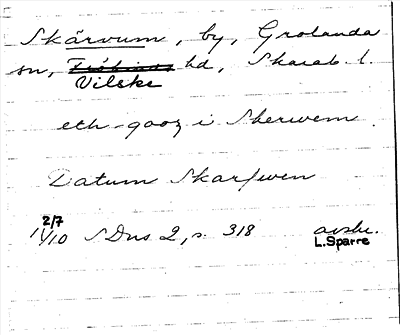 Skärvum, by, Grolanda
sn, Vilske hd, Skarab. l.
eth gooz i Skerwem
Datum Skarfwen
2/7
SDns 2, s. 318 avskr.
L. Sparre